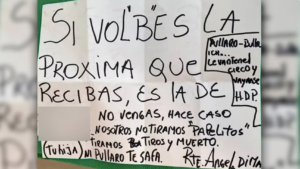 SI VOL'BES LA
PROXIMA QUE
RECIBAS, ES lA DE
PULLARO-Bulla
ich...
Levanten el
circo y
vayanse
H.D.P.
NO VENGAS, HACE CASO
NOSOTRO NOTIRAMOS "PAPELITOS"
TIRAMOS TIROS Y MUERTO.
(TU hija) NI PULLARO TE SAFA.
RTE. ANGEL DIMA